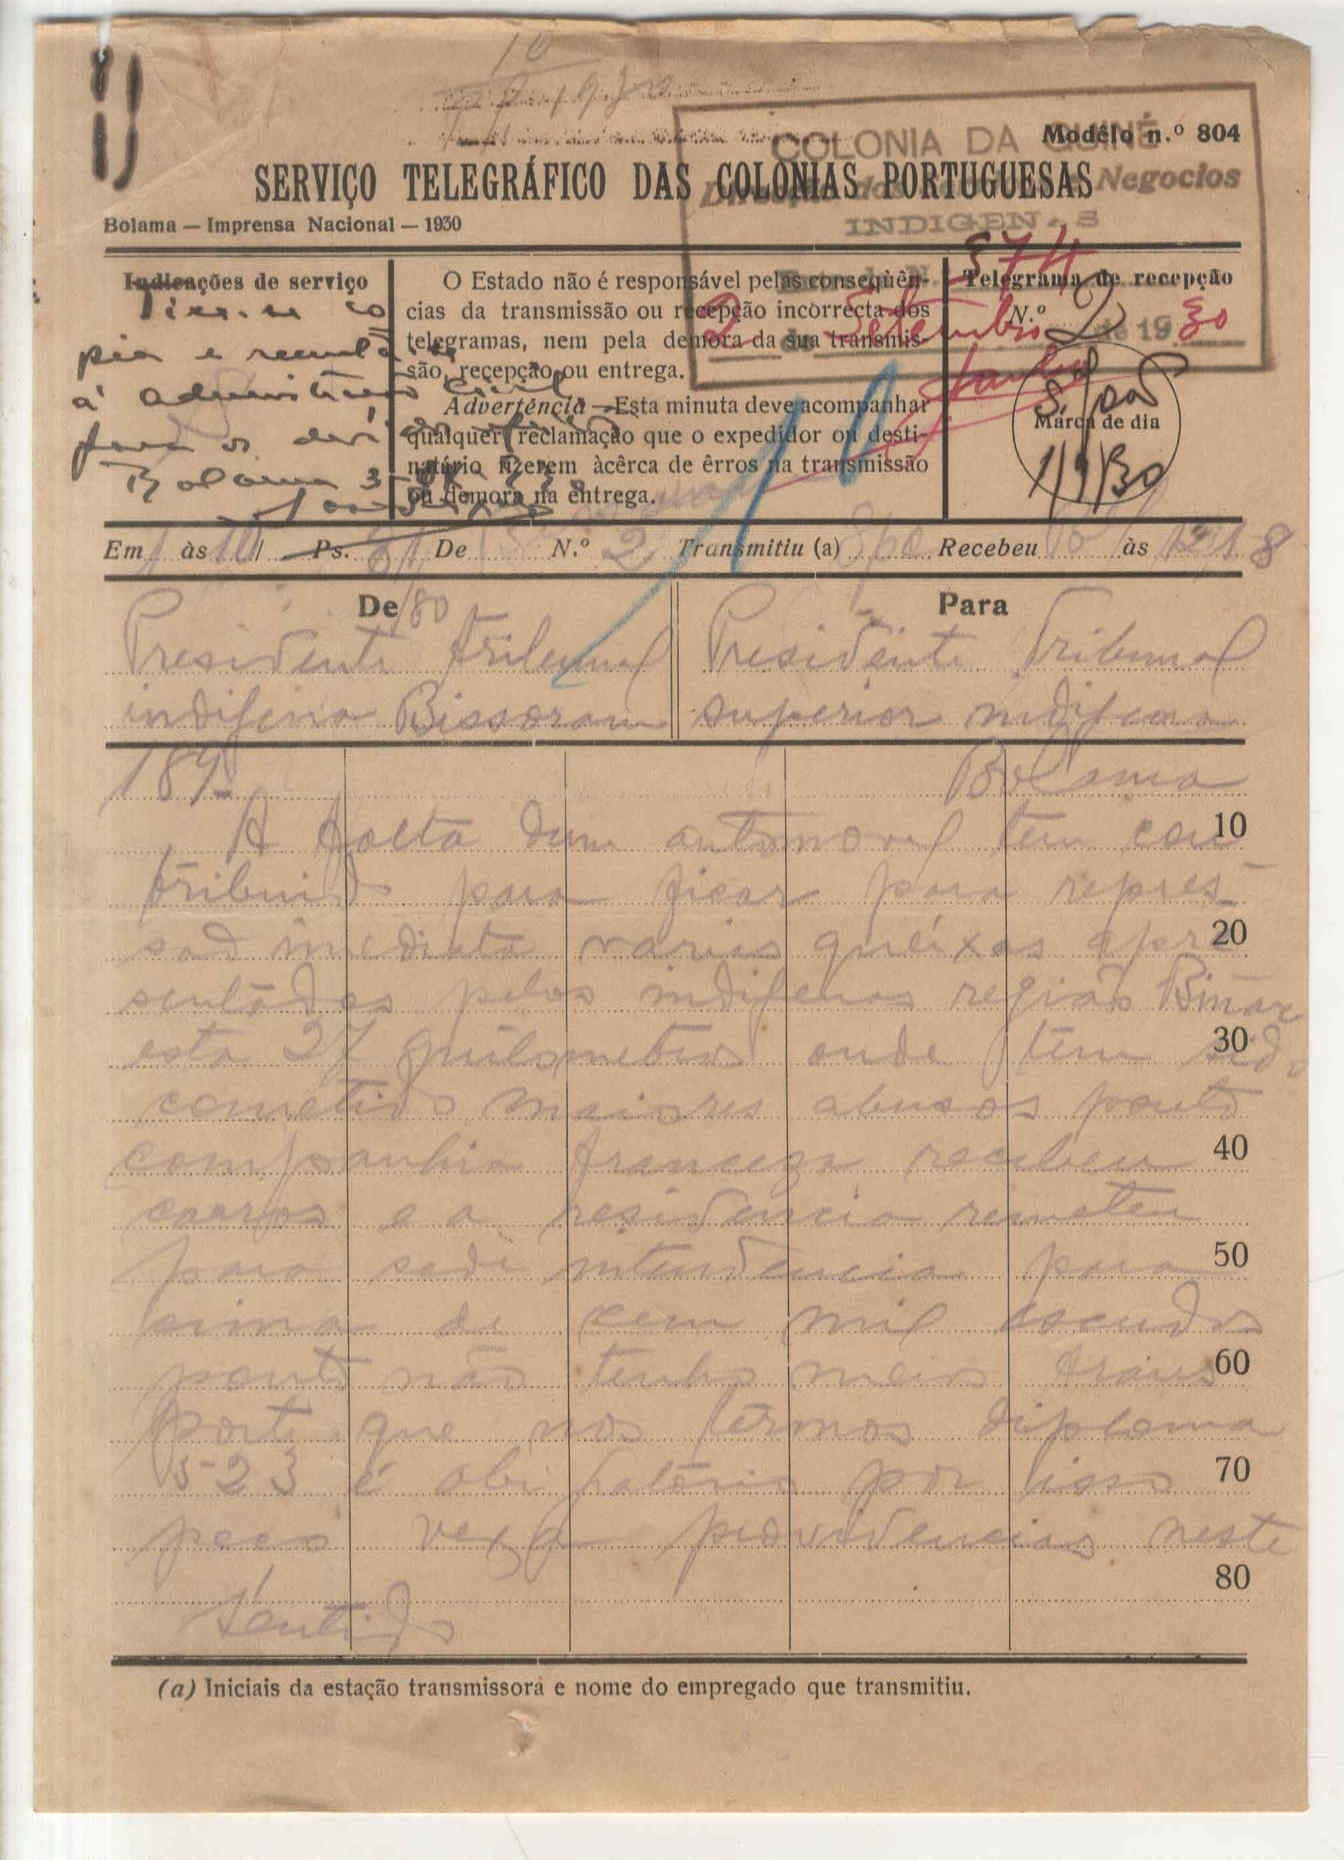 COLONIA DA GUINÉ
Modêlo n.º 804
SERVIÇO TELEGRÁFICO DAS COLÓNIAS PORTUGUESAS
Negocios
INDIGENAS
Bolama — Imprensa Nacional — 1930
574
2 de Setembro de 1930
Indicações de serviço
Tire-se co
pia e remeta-se
á administração civil
para os devidos
Bolama 3
O Estado não é responsável pelas conseqüên-
cias da transmissão ou recepção incorrecta dos
telegramas, nem pela demora da sua transmis-
são, recepção ou entrega.
Advertência — Esta minuta deve acompanhar
qualquer reclamação que o expedidor ou desti-
natário fizerem àcêrca de êrros na transmissão
ou demora na entrega.
Telegrama de recepção
N.º 2
Marca de dia
1/9/30
Em 1 às 10 Ps. De N.º 2 Transmitiu (a) Recebeu às
De
Para
Presidente tribunal
indigena Bissoram
Presidente Tribunal
superior indigena
Bolama
189
A falta dum automovel tem con 10
tribuido para ficar para repres
são imediata varias queixas apre 20
sentadas pelos indigenas região Binar
esta 27 quilometros onde tem sido 30
cometido maiores abusos ponto
companhia franceza recebeu 40
carros e a residencia remeteu
para sede intendencia para 50
cima de cem mil escudos
ponto não tenho meios trans 60
porte que nos termos diploma
523 é obrigatório por isso 70
peço vexa providencias neste
80
sentido
(a) Iniciais da estação transmissora e nome do empregado que transmitiu.